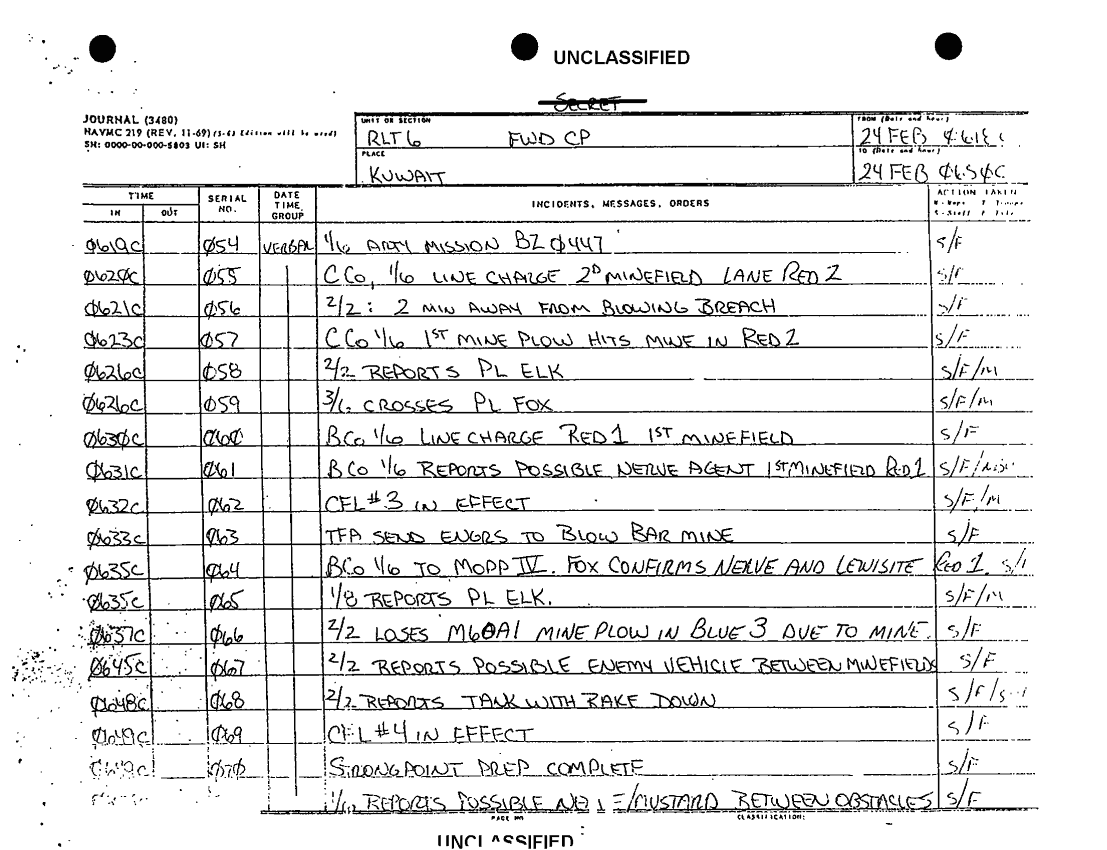 UNCLASSIFIED
SECRET
JOURNAL (3480)
NAVMC 219 (REV. 11-69) (5-63 Edition will be used)
SN: 0000-00-000-5803 UI: SH
UNIT OR SECTION
RLT 6 FWD CP
FROM (Date and hour)
24 FEB
PLACE
KUWAIT
TO (Date and hour)
24 FEB Ø65ØC
TIME
IN OUT
SERIAL NO.
DATE TIME GROUP
INCIDENTS, MESSAGES, ORDERS
ACTION TAKEN
Ø619C Ø54 VERBAL 1/6 ARTY MISSION BZ Ø447 S/F
Ø62ØC Ø55 C CO, 1/6 LINE CHARGE 2D MINEFIELD LANE RED 2 S/F
Ø621C Ø56 2/2: 2 MIN AWAY FROM BLOWING BREACH S/F
Ø623C Ø57 C CO 1/6 1ST MINE PLOW HITS MINE IN RED 2 S/F
Ø626C Ø58 2/2 REPORTS PL ELK S/F/M
Ø626C Ø59 3/6 CROSSES PL FOX S/F/M
Ø63ØC Ø6Ø B CO 1/6 LINE CHARGE RED 1 1ST MINEFIELD S/F
Ø631C Ø61 B CO 1/6 REPORTS POSSIBLE NERVE AGENT 1ST MINEFIELD RED 1 S/F/
Ø632C Ø62 CFL #3 IN EFFECT S/F/M
Ø633C Ø63 TFA SEND ENGRS TO BLOW BAR MINE S/F
Ø635C Ø64 B CO 1/6 TO MOPP IV. FOX CONFIRMS NERVE AND LEWISITE RED 1.
Ø635C Ø65 1/8 REPORTS PL ELK. S/F/M
Ø637C Ø66 2/2 LOSES M60A1 MINE PLOW IN BLUE 3 DUE TO MINE. S/F
Ø645C Ø67 2/2 REPORTS POSSIBLE ENEMY VEHICLE BETWEEN MINEFIELDS S/F
Ø648C Ø68 2/2 REPORTS TANK WITH RAKE DOWN S/F/
Ø649C Ø69 CFL #4 IN EFFECT S/F
Ø7Ø STRONGPOINT PREP COMPLETE S/F
1/6 REPORTS POSSIBLE /MUSTARD BETWEEN OBSTACLES S/F
PAGE NO
CLASSIFICATION:
UNCLASSIFIED